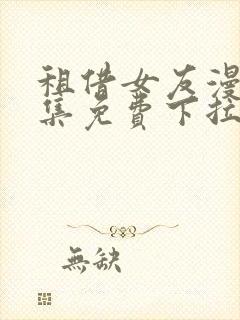 租借女友漫
集免費下拉
無缺